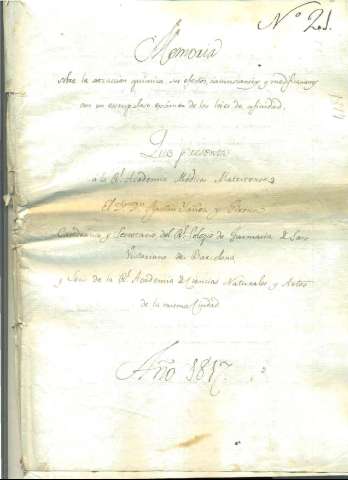 Nº 21.
Memoria
sobre la atraccion química, su efectos, circunstancias y modificaciones
con un exámen de las leies de afinidad.
Que presenta
a la Rl. Academia Medica Matritense
El Dr. Dn. Agustin Yañez y Girona
Catedratico y Secretario del Rl. Colegio de Farmacia de San
Victoriano de Barcelona
y Socio de la Rl. Academia de Ciencias Naturales y Artes
de la misma Ciudad
Año 1817.